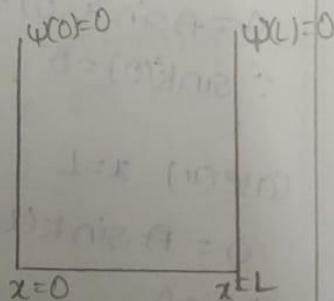 ψ(0)=0 ψ(L)=0
x=0 x=L